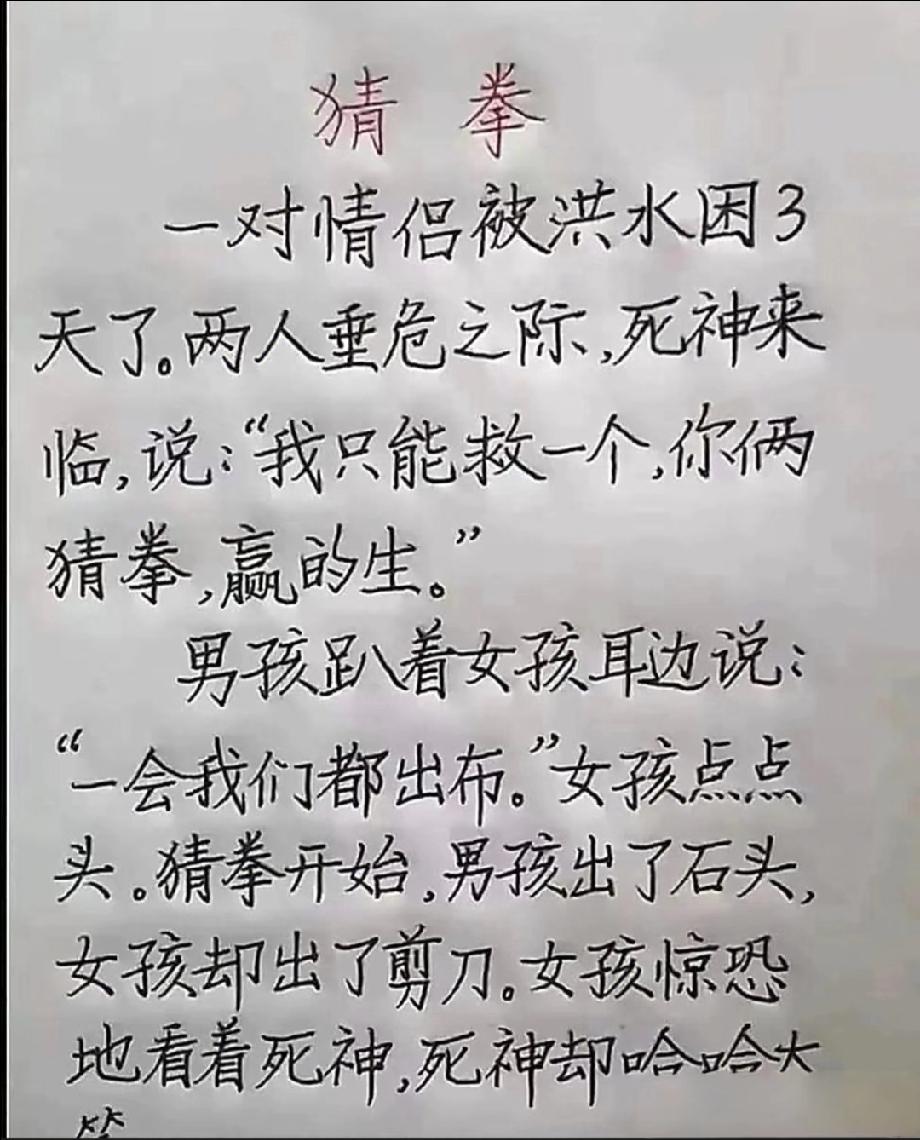 猜拳
一对情侣被洪水困3
天了。两人垂危之际,死神来
临,说:“我只能救一个,你俩
猜拳,赢的生。”
男孩趴着女孩耳边说:
“一会我们都出布。”女孩点点
头。猜拳开始,男孩出了石头,
女孩却出了剪刀。女孩惊恐
地看着死神,死神却哈哈大